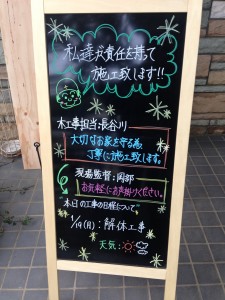 私達が責任を持って
施工致します!!
木工事担当:長谷川
大切なお家を守る為、
丁寧に施工致します。
現場監督:岡部
お気軽にお声掛けください。
本日の工事の日程について
1/19(月):解体工事
天気: